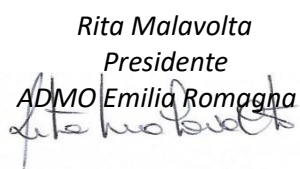 Rita Malavolta
Presidente
ADMO Emilia Romagna
Rita Malavolta